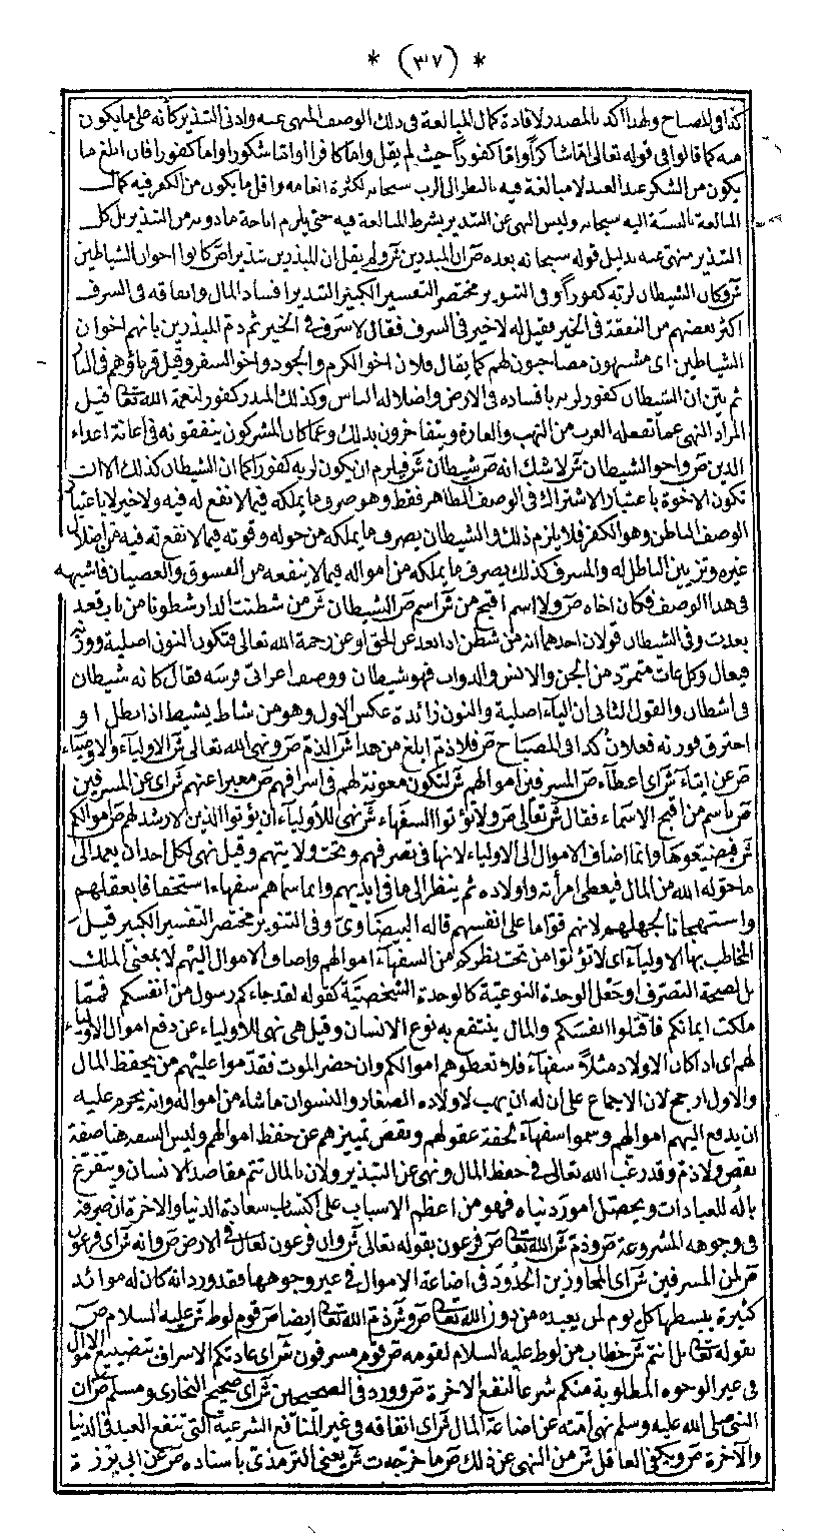 * (٣١٧) *
كذا في المصباح ولهذا أكد بالمصدر لافادة كمال المبالغة في ذلك الوصف المنهى عنه وادنى التبذير كأنه على ما يكون
منه كما قالوا في قوله تعالى اما شاكراً واما كفوراً حيث لم يقل واما كافرا او اما شكورا واما كفورا فان ابلغ ما
يكون من الشكر عند العبد لا مبالغة فيه بالنظر الى الرب سبحانه لكثرة انعامه واقل ما يكون من الكفر فيه كمال
المبالغة بالنسبة اليه سبحانه وليس النهى عن التبذير بشرط المبالغة فيه حتى يلزم اباحة ما دونه من التبذير بل كل
التبذير منهى عنه بدليل قوله سبحانه بعده ص ان المبذرين ش ولم يقل ان للمبذرين تبذيرا ص كانوا اخوان الشياطين
ش وكان الشيطان لربه كفوراً وفي التنوير مختصر التفسير الكبير التبذير افساد المال وانفاقه في السرف
اكثر بعضهم من النفقة في الخير فقيل له لا خير في السرف فقال لا سرف في الخير ثم ذم المبذرين بانهم اخوان
الشياطين اى مشبهون مصاحبون لهم كما يقال فلان اخو الكرم والجود واخو السفر وقيل قرناؤهم في النار
ثم بين ان الشيطان كفور لربه بافساده في الارض واضلاله الناس وكذلك المبذر كفور لنعمة الله تعالى قيل
المراد النهى عما تفعله العرب من النهب والغارة ويتفاخرون بذلك وعما كان المشركون ينفقونه في اعانة اعداء
الدين ص واخو الشيطان ش لا شك انه ص شيطان ش فيلزم ان يكون لربه كفورا كما ان الشيطان كذلك الا ان
تكون الاخوة باعتبار الاشتراك في الوصف الظاهر فقط وهو صرف ما يملكه فيما لا نفع له فيه ولا خير لا باعتبار
الوصف الباطن وهو الكفر فلا يلزم ذلك والشيطان يصرف ما يملكه من حوله وقوته فيما لا نفع له فيه من اضلال
غيره وتزيين الباطل له والمسرف كذلك يصرف ما يملكه من امواله فيما لا ينفعه من الفسوق والعصيان فاشبهه
في هذا الوصف فكان اخاه ص ولا اسم اقبح من ش اسم ص الشيطان ش من شطنت الدار شطونا من باب قعد
بعدت وفي الشيطان قولان احدهما انه من شطن اذا بعد عن الحق او عن رحمة الله تعالى فتكون النون اصلية ووزنه
فيعال وكل عات متمرد من الجن والانس والدواب فهو شيطان ووصف اعرابى فرسه فقال كانه شيطان
في اشطان والقول الثانى ان الياء اصلية والنون زائدة عكس الاول وهو من شاط يشيط اذا بطل او
احترق فوزنه فعلان كذا في المصباح ص فلا ذم ابلغ من هذا ش الذم ص ونهى الله تعالى ش الاولياء والاوصياء
ص عن ايتاء ش اى اعطاء ص المسرفين اموالهم ش لتكون معونة لهم في اسرافهم ص معبرا عنهم ش اى عن المسرفين
ص باسم من اقبح الاسماء فقال ش تعالى ص ولا تؤتوا السفهاء ش نهى للاولياء ان يؤتوا الذين لا رشد لهم ص اموالكم
ش فيضيعوها وانما اضاف الاموال الى الاولياء لانها في تصرفهم وتحت ولايتهم وقيل نهى لكل احد ان يعمد الى
ما خوله الله من المال فيعطى امرأته واولاده ثم ينظر الى ما في ايديهم وانما سماهم سفهاء استخفافا بعقلهم
واستهجانا لجهلهم لانهم قواما على انفسهم قاله البيضاوى وفي التنوير مختصر التفسير الكبير قيل
المخاطب بها الاولياء اى لا تؤتوا من تحت نظركم من السفهاء اموالهم واضاف الاموال اليهم لا بمعنى الملك
بل لصحة التصرف او جعل الوحدة النوعية كالوحدة الشخصية كقوله لقد جاءكم رسول من انفسكم فمما
ملكت ايمانكم فاقتلوا انفسكم والمال ينتفع به نوع الانسان وقيل هى نهى للاولياء عن دفع اموال الاولياء
لهم اى اذا كان الاولاد مثلا سفهاء فلا تعطوهم اموالكم وان حضر الموت فقدموا عليهم من يحفظ المال
والاول ارجح لان الاجماع على ان له ان يهب لاولاده الصغار والنسوان ما شاء من امواله وانه يحرم عليه
ان يدفع اليهم اموالهم وسموا سفهاء لخفة عقولهم ونقص تمييزهم عن حفظ اموالهم وليس السفه هنا صفة
نقص ولا ذم وقد رغب الله تعالى في حفظ المال ونهى عن التبذير ولان بالمال تتم مقاصد الانسان ويتفرغ
باله للعبادات ويحصل امور دنياه فهو من اعظم الاسباب على اكتساب سعادة الدنيا والاخرة ان صرفه
في وجوهه المشروعة ص وذم ش الله تعالى ص فرعون بقوله تعالى ش وان فرعون لعال في الارض ص وانه ش اى فرعون
ص لمن المسرفين ش اى المجاوزين الحدود في اضاعة الاموال في غير وجوهها فقد ورد انه كان له موائد
كثيرة يبسطها كل يوم لمن يعبده من دون الله تعالى ص و ش ذم الله تعالى ايضا ص قوم لوط ش عليه السلام ص
بقوله تعالى بل انتم ش خطاب من لوط عليه السلام لقومه ص قوم مسرفون ش اى عادتكم الاسراف بتضييع الاموال
في غير الوجوه المطلوبة منكم شرعا لنفع الاخرة ص وورد في الصحيحين ش اى صحيح البخارى ومسلم ص ان
النبى صلى الله عليه وسلم نهى امته عن اضاعة المال ش اى انفاقه في غير المنافع الشرعية التى تنفع العبد في الدنيا
والآخرة ص ويكفى العاقل ش من النهى عن ذلك ص ما خرجه ت ش يعنى الترمذى باسناده ص عن ابى برزة